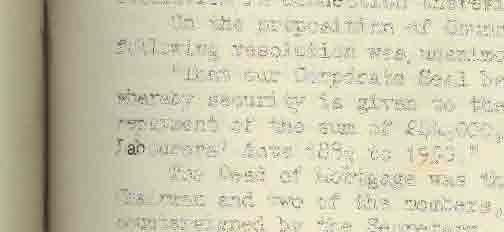 On the proposition of
following resolution was,
"That our Corporate Seal be
whereby security is given to the
repayment of the sum of
Labourers' Acts to
The Deed of Mortgage was
Chairman and two of the members,
countersigned by the Secretary